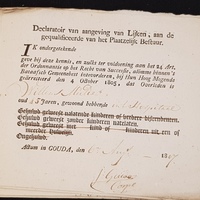 Declaratoir van aangeving van Lijken, aan de
gequalificeerde van het Plaatzelijk Bestuur.
IK ondergetekende
geve bij dezen kennis, en zulks ter voldoening aan het 24 Art.
der Ordonnantie op het Recht van Successie, alomme binnen 's
Bataafsch Gemeenebest intevorderen, bij Hun Hoog Mogende
gearresteerd den 4 October 1805, dat Overleden is
Willem
oud 45 Jaren, gewoond hebbende
Gehuwd geweest nalatende kinderen of verdere afstammelingen.
Gehuwd geweest zonder kinderen natelaten.
Gehuwd geweest met kind of kinderen uit een of
meerder huwelijk.
Ongehuwd.
Actum in GOUDA, den 1807